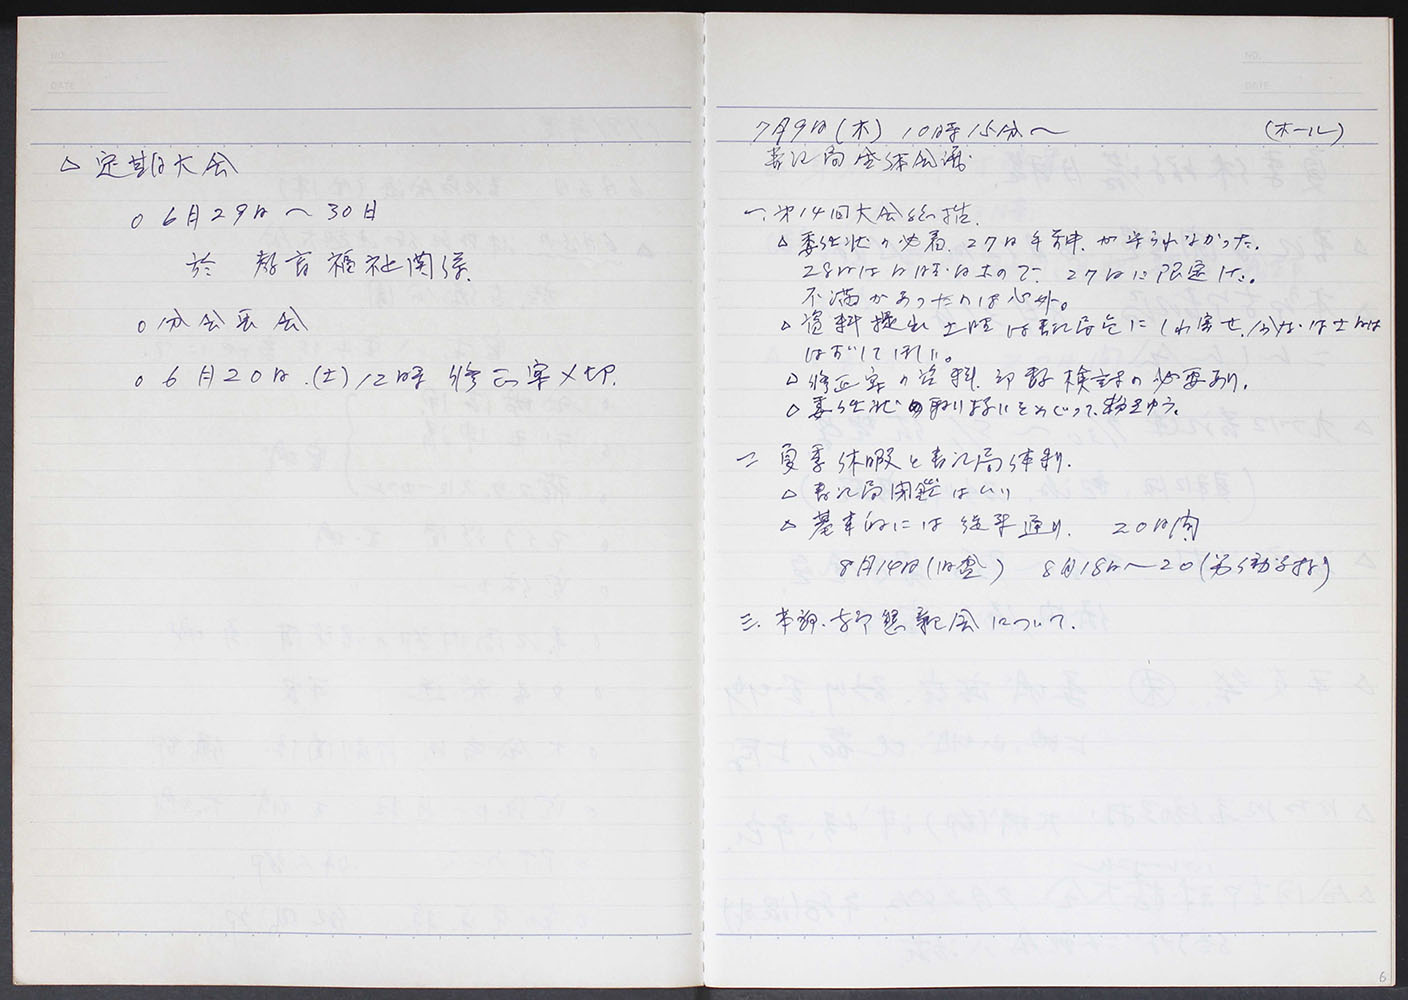 △ 定期大会
○ 6月29日〜30日
於 教育福祉関係
○ 分会長会
○ 6月20日.(土)12時 修正案〆切.
7月9日(木) 10時15分〜 (ホール)
書記局全体会議
一. 第14回大会総括.
△ 委任状の必着、27日午前中.が守られなかった.
28日は日曜日なので、27日に限定した。
不満があったのは心外。
△ 資料提出 は書記局員にしわ寄せ
はずしてほしい。
△ 修正案の資料、印数検討の必要あり.
△ 委任状の取り扱いをめぐって
二 夏季休暇と書記局体制.
△ 書記局閉鎖はしない
△ 基本的には従来通り. 20日間
8月14日(旧盆) 8月18日〜20(労働学校)
三. 本部. 懇親会について.
NO.
DATE
NO.
DATE
6